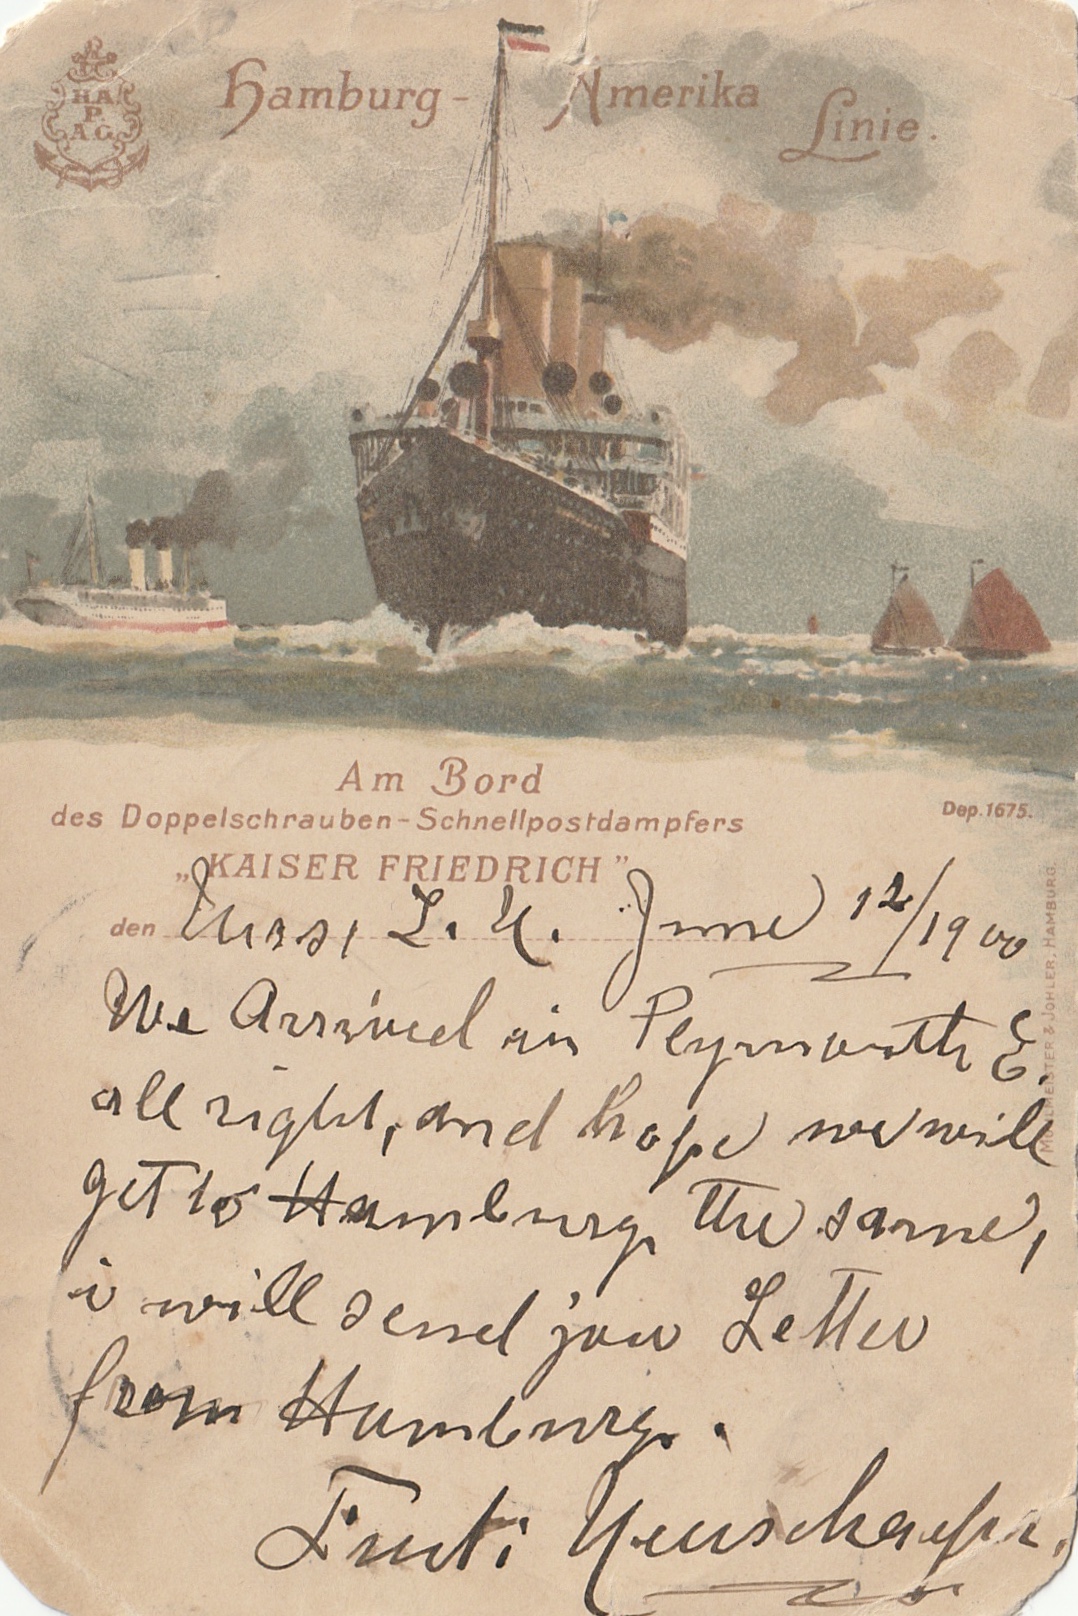 HAPAG
Hamburg-Amerika Linie.
Am Bord
des Doppelschrauben-Schnellpostdampfers
Dep. 1675.
„KAISER FRIEDRICH"
den June 12/1900
We Arrived in Plymouth E.
all right, and hope we will
get to Hamburg the same,
i will send jou Letter
from Hamburg.
MÜHLMEISTER & JOHLER, HAMBURG.